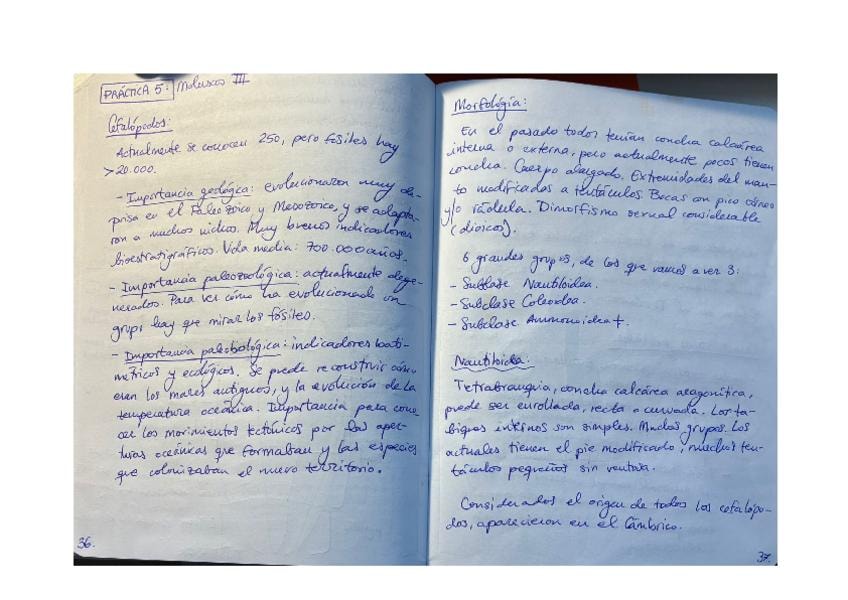 PRÁCTICA 5: Moluscos III
Cefalópodos:
Actualmente se conocen 250, pero fósiles hay
>20.000.
- Importancia geológica: evolucionaron muy de-
prisa en el Paleozoico y Mesozoico, y se adapta-
ron a muchos nichos. Muy buenos indicadores
bioestratigráficos. Vida media: 700.000 años.
- Importancia paleozoológica: actualmente dege-
nerados. Para ver cómo ha evolucionado un
grupo hay que mirar los fósiles.
- Importancia paleobiológica: indicadores bati-
métricos y ecológicos. Se puede reconstruir cómo
eran los mares antiguos, y la evolución de la
temperatura oceánica. Importancia para cono-
cer los movimientos tectónicos por las aper-
turas oceánicas que formaban y las especies
que colonizaban el nuevo territorio.
36.
Morfología:
En el pasado todos tenían concha calcárea
interna o externa, pero actualmente pocos tienen
concha. Cuerpo alargado. Extremidades del man-
to modificadas a tentáculos. Bocas con pico córneo
y/o rádula. Dimorfismo sexual considerable
(dioicos).
6 grandes grupos, de los que vamos a ver 3:
- Subclase Nautiloidea.
- Subclase Coleoidea.
- Subclase Ammonoidea+.
Nautiloidea:
Tetrabranquia, concha calcárea aragonítica,
puede ser enrollada, recta o curvada. Los ta-
biques internos son simples. Muchos grupos. Los
actuales tienen el pie modificado, muchos ten-
táculos pequeños sin ventosa.
Considerados el origen de todos los cefalópo-
dos, aparecieron en el Cámbrico.
37.